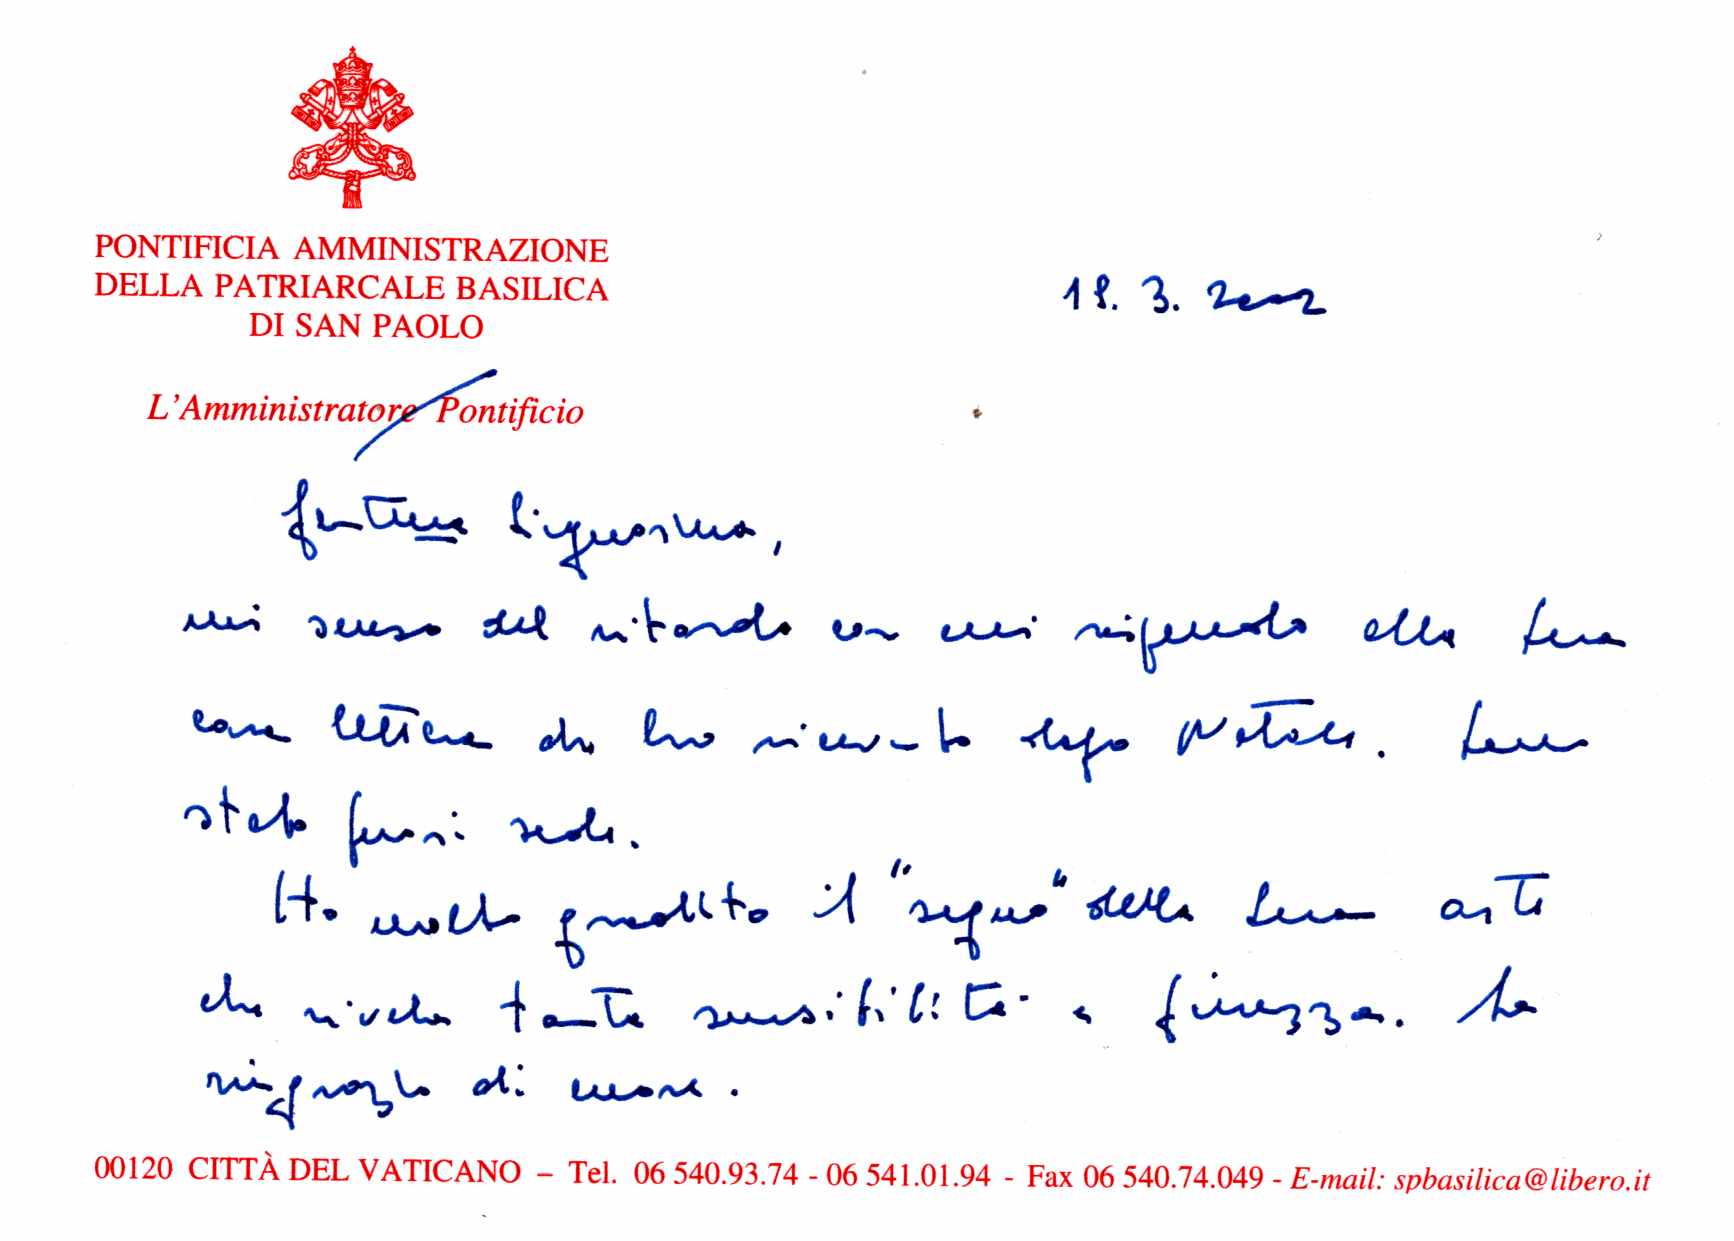 PONTIFICIA AMMINISTRAZIONE
DELLA PATRIARCALE BASILICA
DI SAN PAOLO
18. 3. 2002
L'Amministratore Pontificio
Gent.ma Signorina,
mi scuso del ritardo con cui rispondo alla Sua
cara lettera che ho ricevuto dopo Natale. Sono
stato fuori sede.
Ho molto gradito il "segno" della Sua arte
che rivela tanta sensibilità e finezza. La
ringrazio di cuore.
00120 CITTÀ DEL VATICANO – Tel. 06 540.93.74 - 06 541.01.94 - Fax 06 540.74.049 - E-mail: spbasilica@libero.it